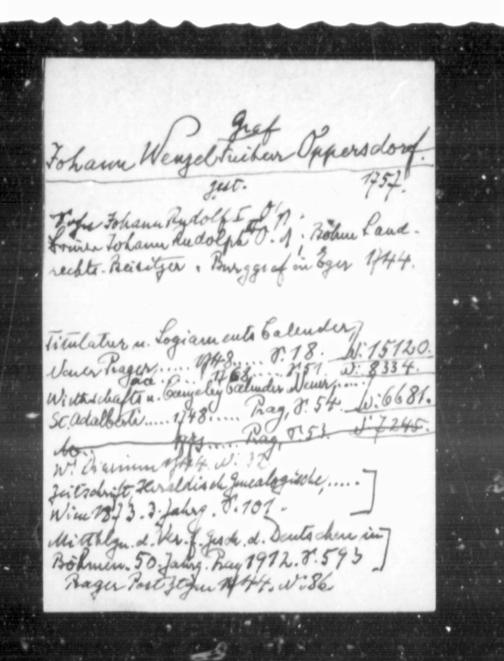 Graf
Johann Wenzel Freiherr Oppersdorf.
gest. 1757.
Sohn Johann Rudolf I. O's,
Bruder Johann Rudolph II O. ; Böhm Land-
rechts-Beisitzer, Burggraf in Eger 1744.
Titulatur u. Logiaments Calender,
Neuer Prager..... 1748..... S. 18. W: 15120.
1763.... S. 51. W: 8334.
Wirthschafts u. Canzeley Calender Neuer,....
Sc. Adalberti..... 1748..... Prag, S. 54. W: 6681.
..... Prag, S. 53. W: 7245.
W. Diarium 1744. N: 32
Zeitschrift, Heraldisch Genealogische,.....
Wien 1873. 3. Jahrg. S. 101.
Mitthlgn. d. Ver. f. Gesch. d. Deutschen in
Böhmen. 50. Jahrg. Prag 1912. S. 593
Prager Post Ztgn 1744. N: 86